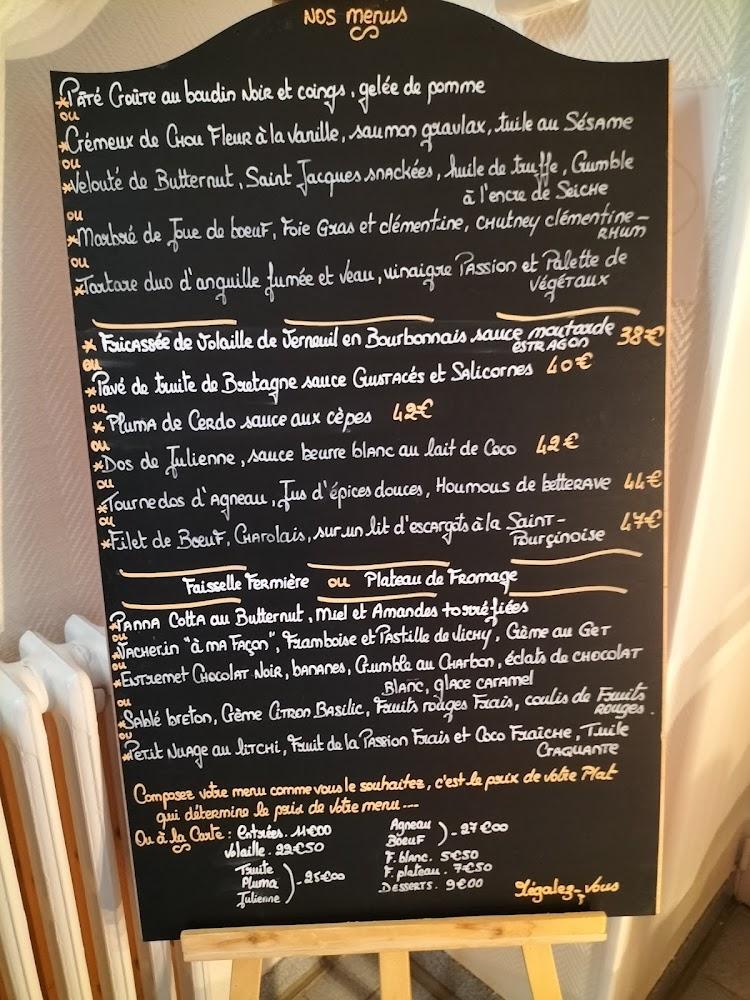 Nos menus
*Pâté Croûte au boudin Noir et coings, gelée de pomme
ou
*Crémeux de Chou Fleur à la vanille, saumon gravlax, tuile au Sésame
ou
*Velouté de Butternut, Saint Jacques snackées, huile de truffe, Crumble
à l'encre de Seiche
ou
*Marbré de Joue de boeuf, Foie Gras et clémentine, chutney clémentine-
Rhum
ou
*Tartare duo d'anguille fumée et veau, vinaigre Passion et Palette de
Végétaux
* Fricassée de Volaille de Verneuil en Bourbonnais sauce moutarde 38€
estragon
ou
*Pavé de truite de Bretagne sauce Crustacés et Salicornes 40€
ou
* Pluma de Cerdo sauce aux cèpes 42€
ou
*Dos de Julienne, sauce beurre blanc au lait de Coco 42€
ou
*Tournedos d'Agneau, Jus d'épices douces, Houmous de betterave 44€
ou
*Filet de Boeuf, Charolais, sur un lit d'escargots à la Saint- 47€
Pourçinoise
Faisselle Fermière ou Plateau de Fromage
*Panna Cotta au Butternut, Miel et Amandes torréfiées
ou
*Vacherin "à ma Façon", Framboise et Pastille de Vichy, Crème au Get
ou
*Entremet Chocolat Noir, bananes, Crumble au Charbon, éclats de chocolat
Blanc, glace caramel
ou
*Sablé breton, Crème Citron Basilic, Fruits rouges Frais, coulis de Fruits
Rouges.
ou
*Petit Nuage au litchi, Fruit de la Passion Frais et Coco Fraîche, Tuile
Craquante
Composez votre menu comme vous le souhaitez, c'est le prix de votre Plat
qui détermine le prix de votre menu....
Ou à la Carte : Entrées. 11€00
Volaille. 22€50
Truite
Pluma )-25€00
Julienne
Agneau
Boeuf )-27€00
F. blanc. 5€50
F. plateau. 7€50
Desserts. 9€00
Régalez-vous